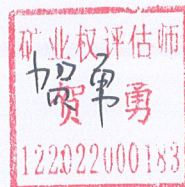 矿业权评估师
贺勇
122022000183